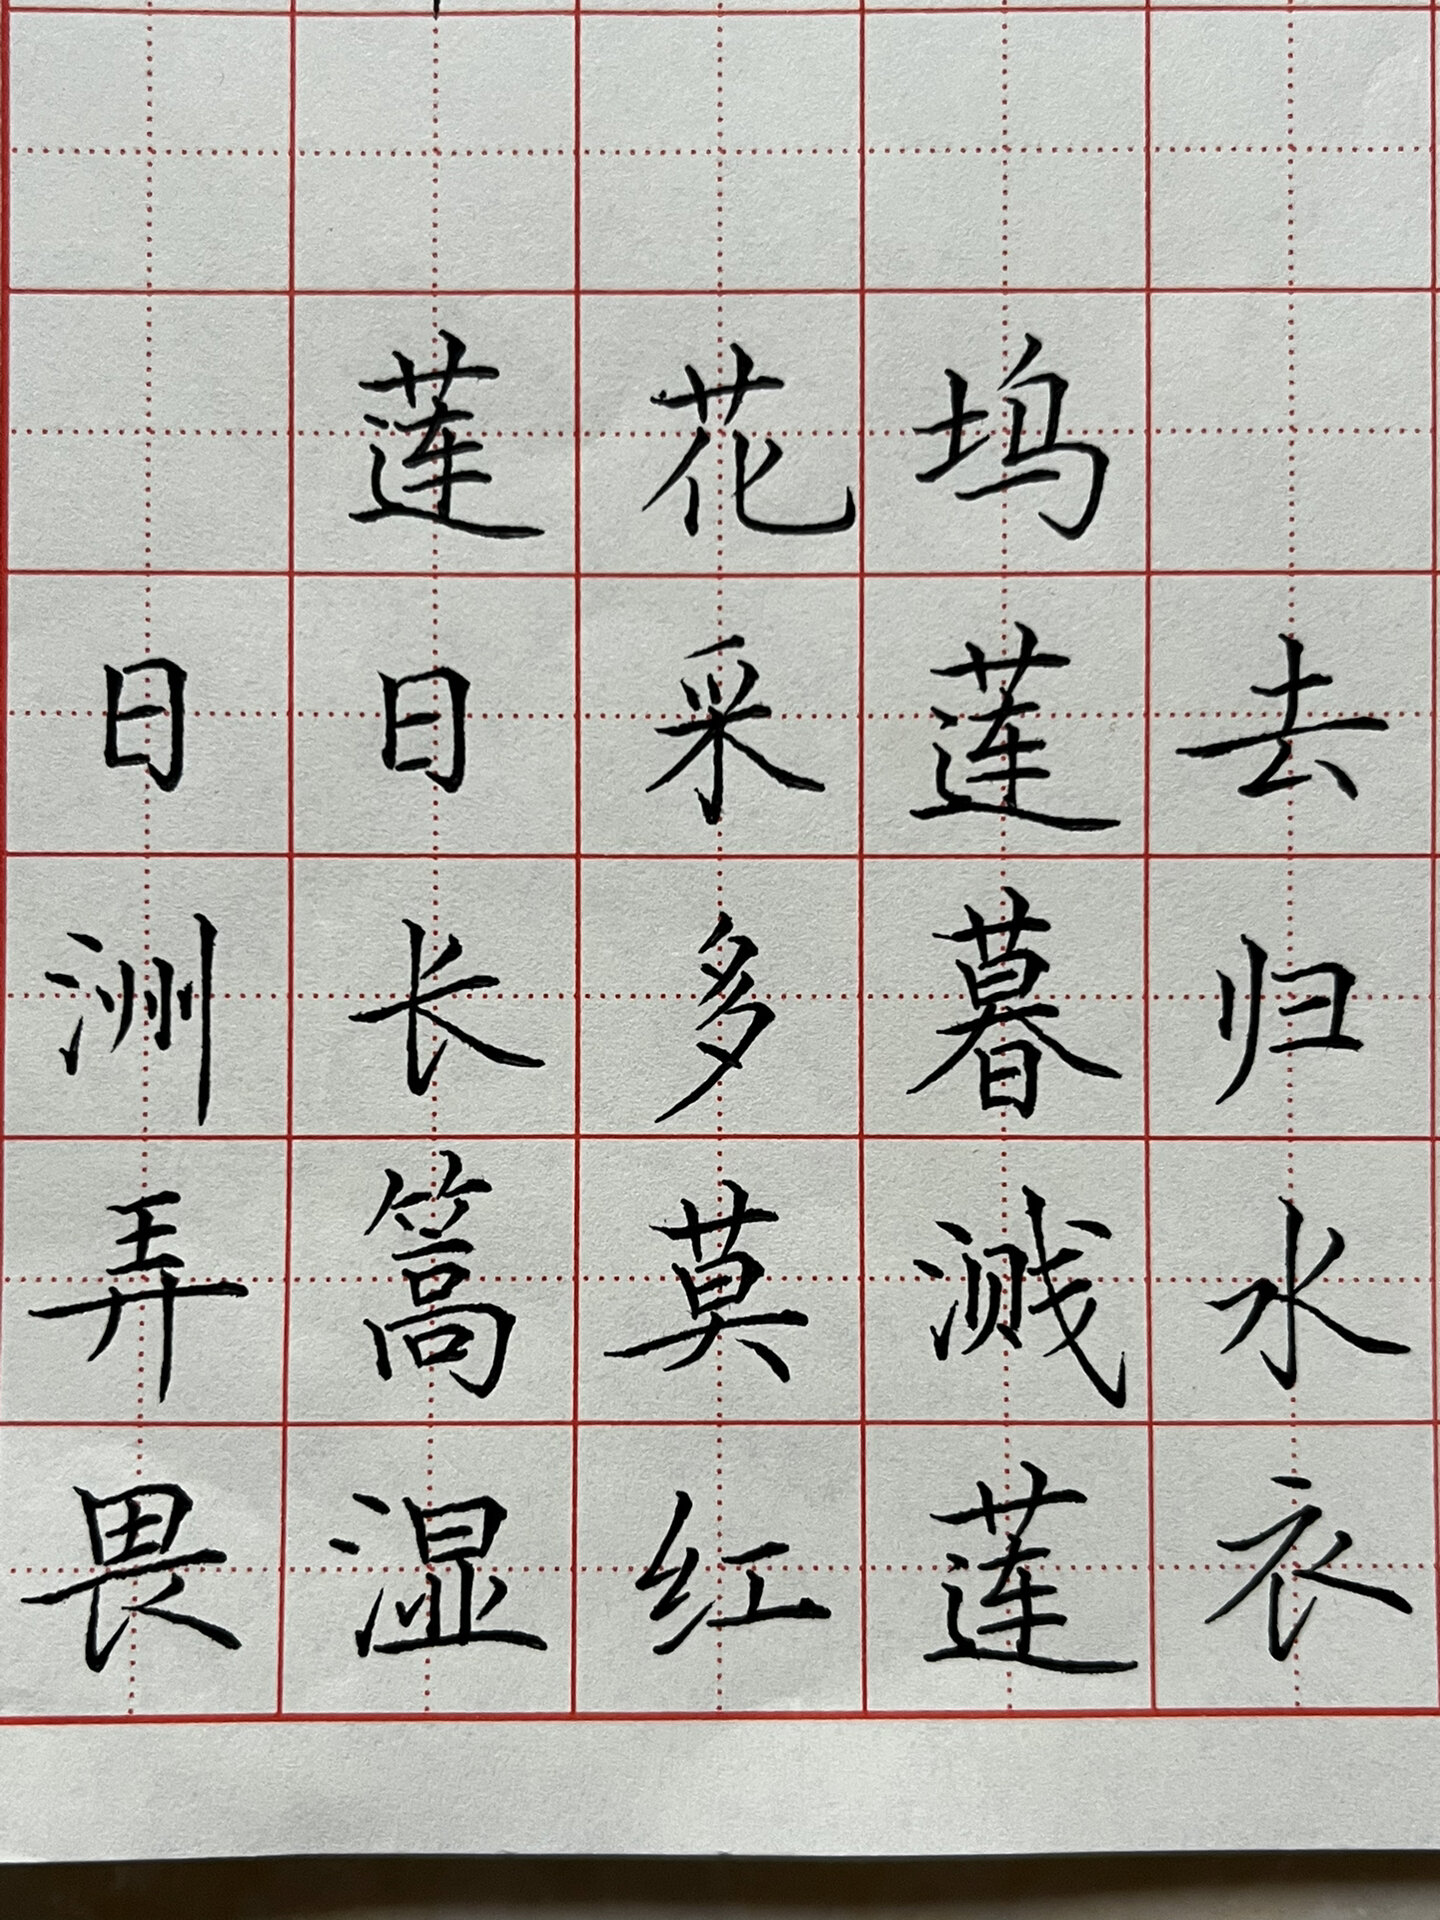 莲花坞
日日采莲去
洲长多暮归
弄篙莫溅水
畏湿红莲衣